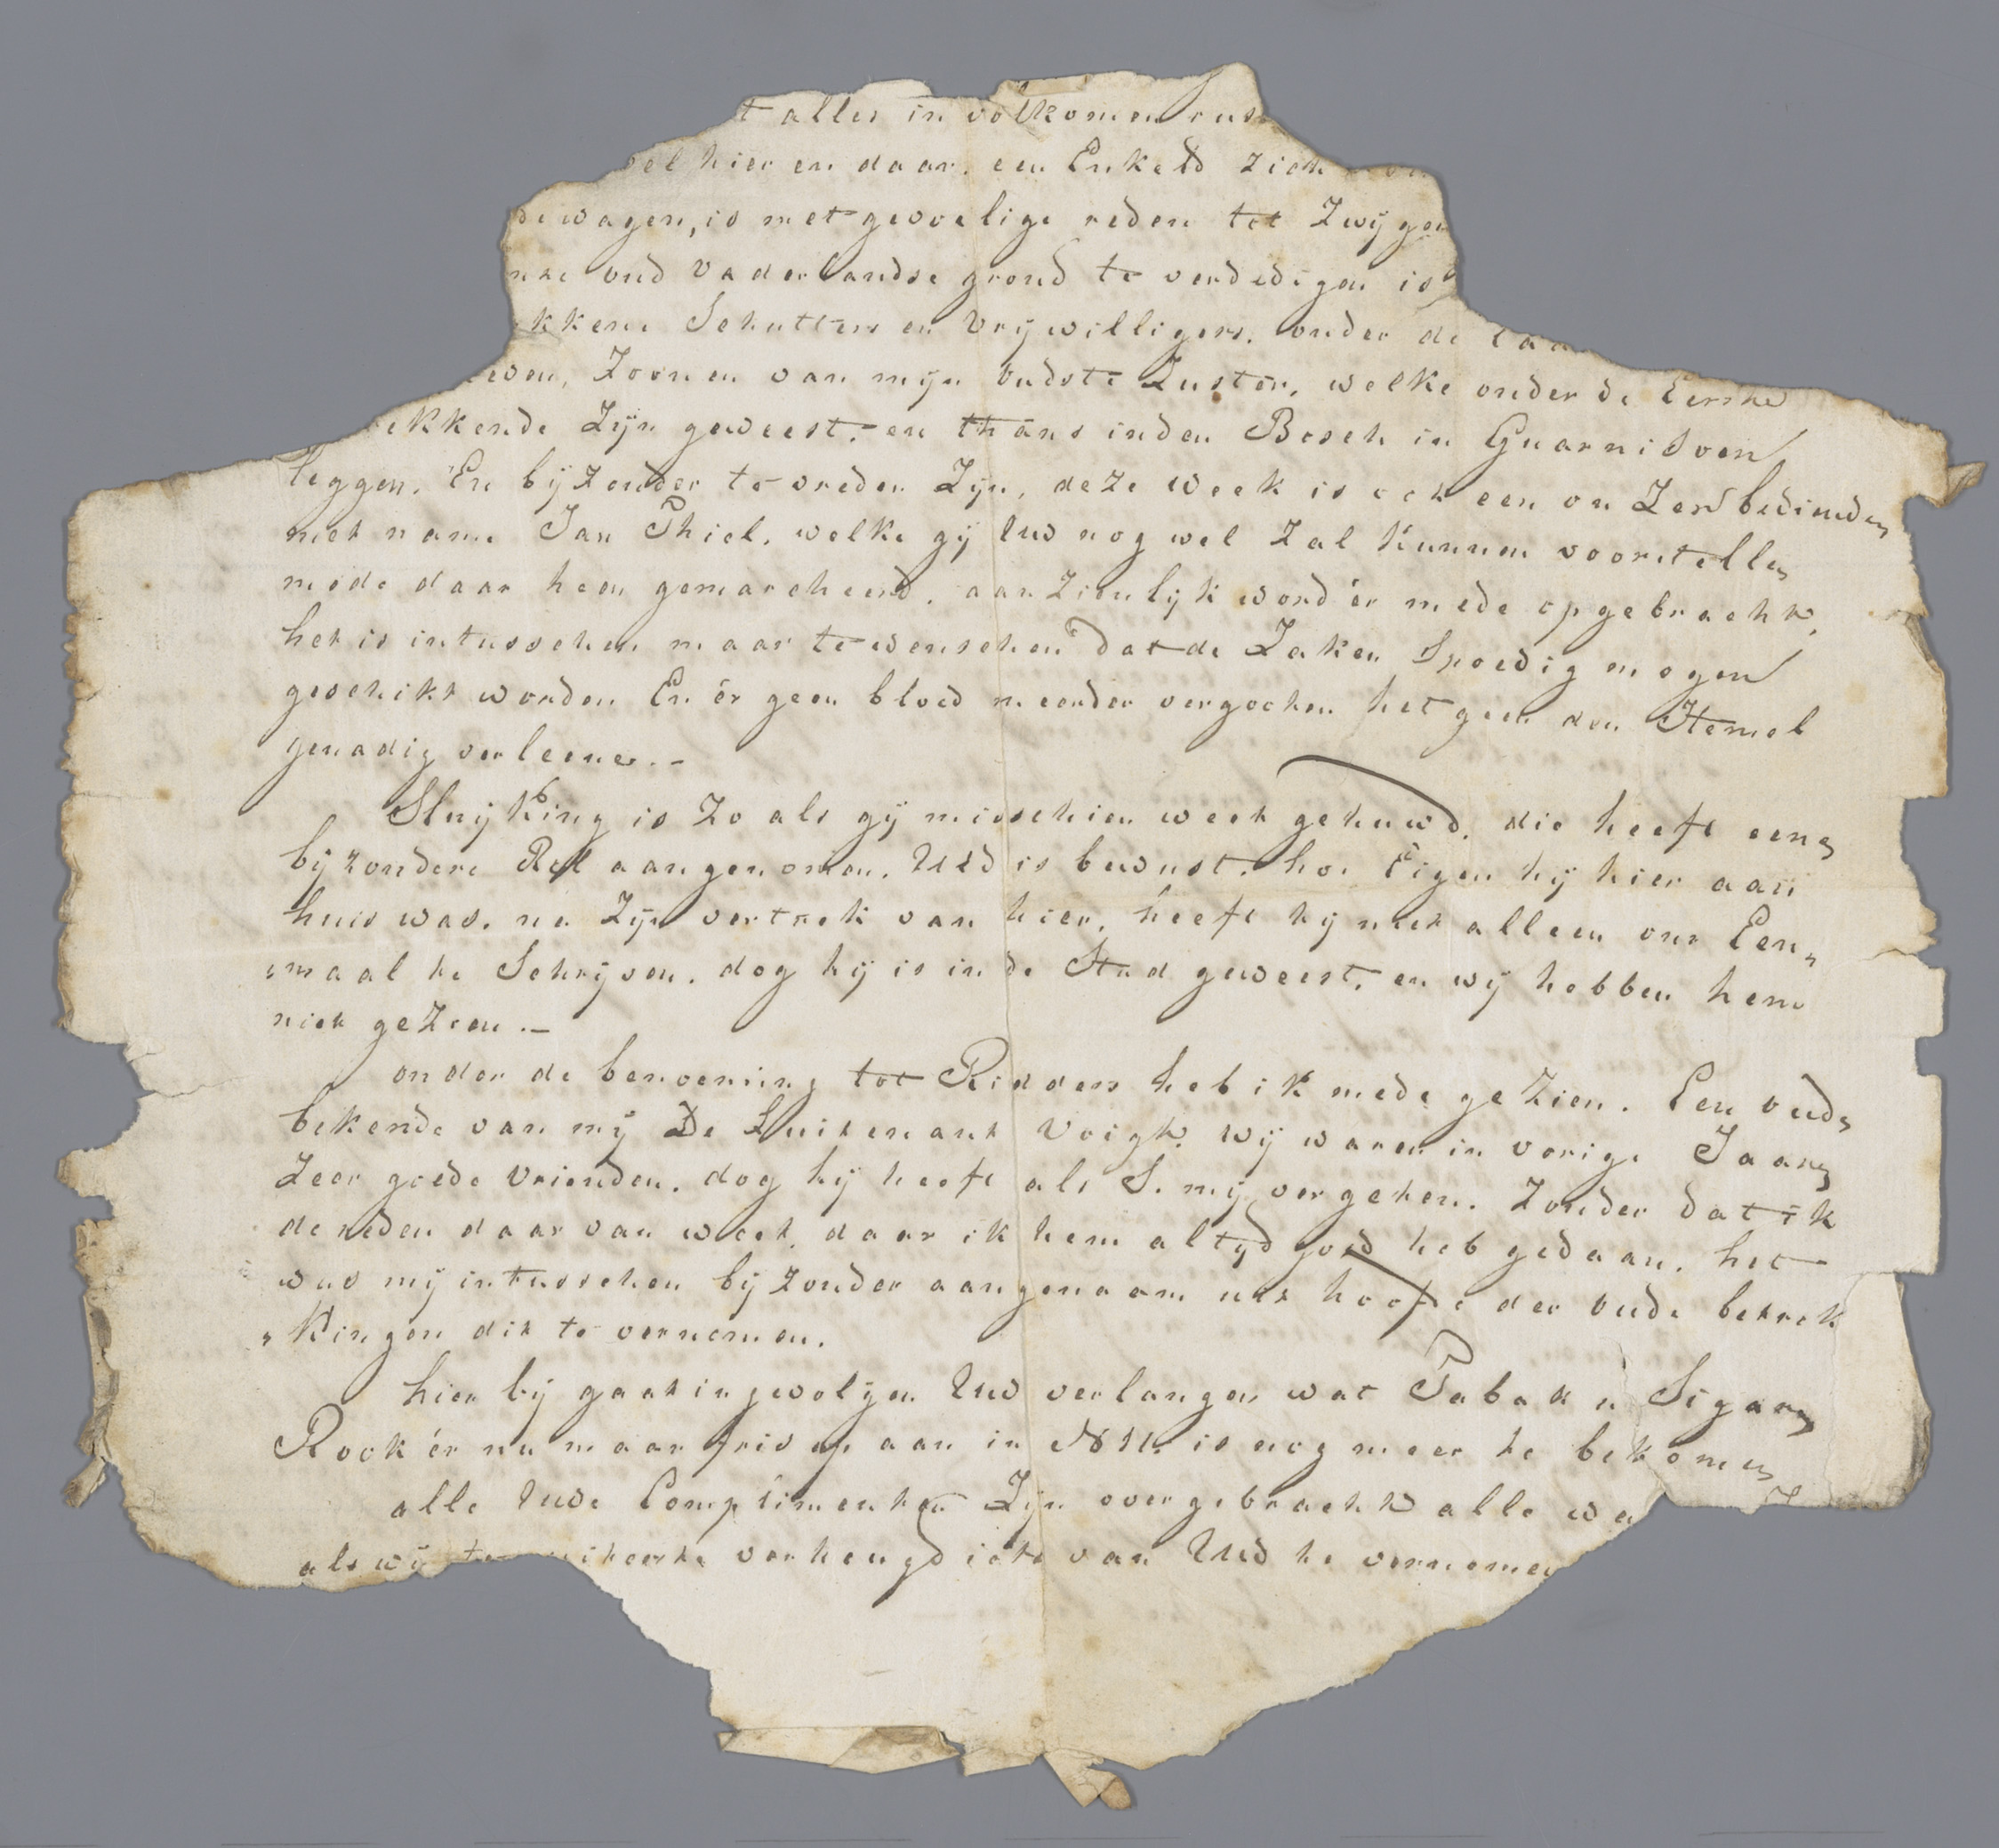 t alles in volkomen rus
el hier en daar. een Enkeld zich
de wagen, is met gevoelige reden tot Zwijgen
oud vaderlandse grond te verdedigen is
kkene Schutters en Vrijwilligers. onder de
Zoonen van mijn oudste Zuster, welke onder de Eerste
ekkende Zijn geweest. en thans inden Bosch in Guarnisoen
leggen. En bijzonder te vreden Zijn, deze week is ook een on Zer bediendens
met name Jan Thiel. welke gij Uw nog wel Zal Kunnen voorstellen
mede daar heen gemarcheerd. aanzienlijk word ér mede opgebracht.
het is intusschen maar te wenschen dat de Zaken Spoedig mogen
geschikt worden En ér geen bloed meerder vergoten het geen den Hemel
genadig verleene. -
Sluyking is Zo als gij misschien weet gehuwd. die heeft een
bijzondere Rol aangenomen. UEd is bewust. hoe Eigen hij hier aan
huis was. na Zijn vertrek van hier. heeft hij niet alleen ons Een„
„maal te Schrijven. dog hij is in de Stad geweest. en wij hebben hem
niet gezien. -
onder de benoeming tot Ridders heb ik mede gezien. Een oude
bekende van mij De Luitenant Voigt. wij waren in vorige Jaaren
Zeer goede Vrienden. dog hij heeft als S. mij vergeten. Zonder dat ik
de reden daar van weet. daar ik hem altijd goed heb gedaan. het
was mij intusschen bijzonder aangenaam uit hoofde der oude betrek
„Kingen dit te vernemen.
hier bij gaat ingevolgen Uw verlangen wat Tabak n Sigaren
Rook ér nu maar fris op aan in is nog meer te bekomen
alle Uwe Complimenten Zijn overgebracht alle wa
als wij verheugd iets van UEd te vernemen